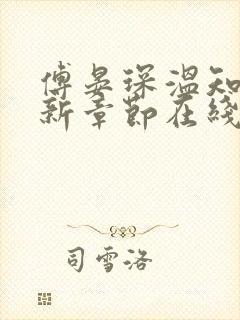 傅晏琛温知
新章节在线
司雪洛